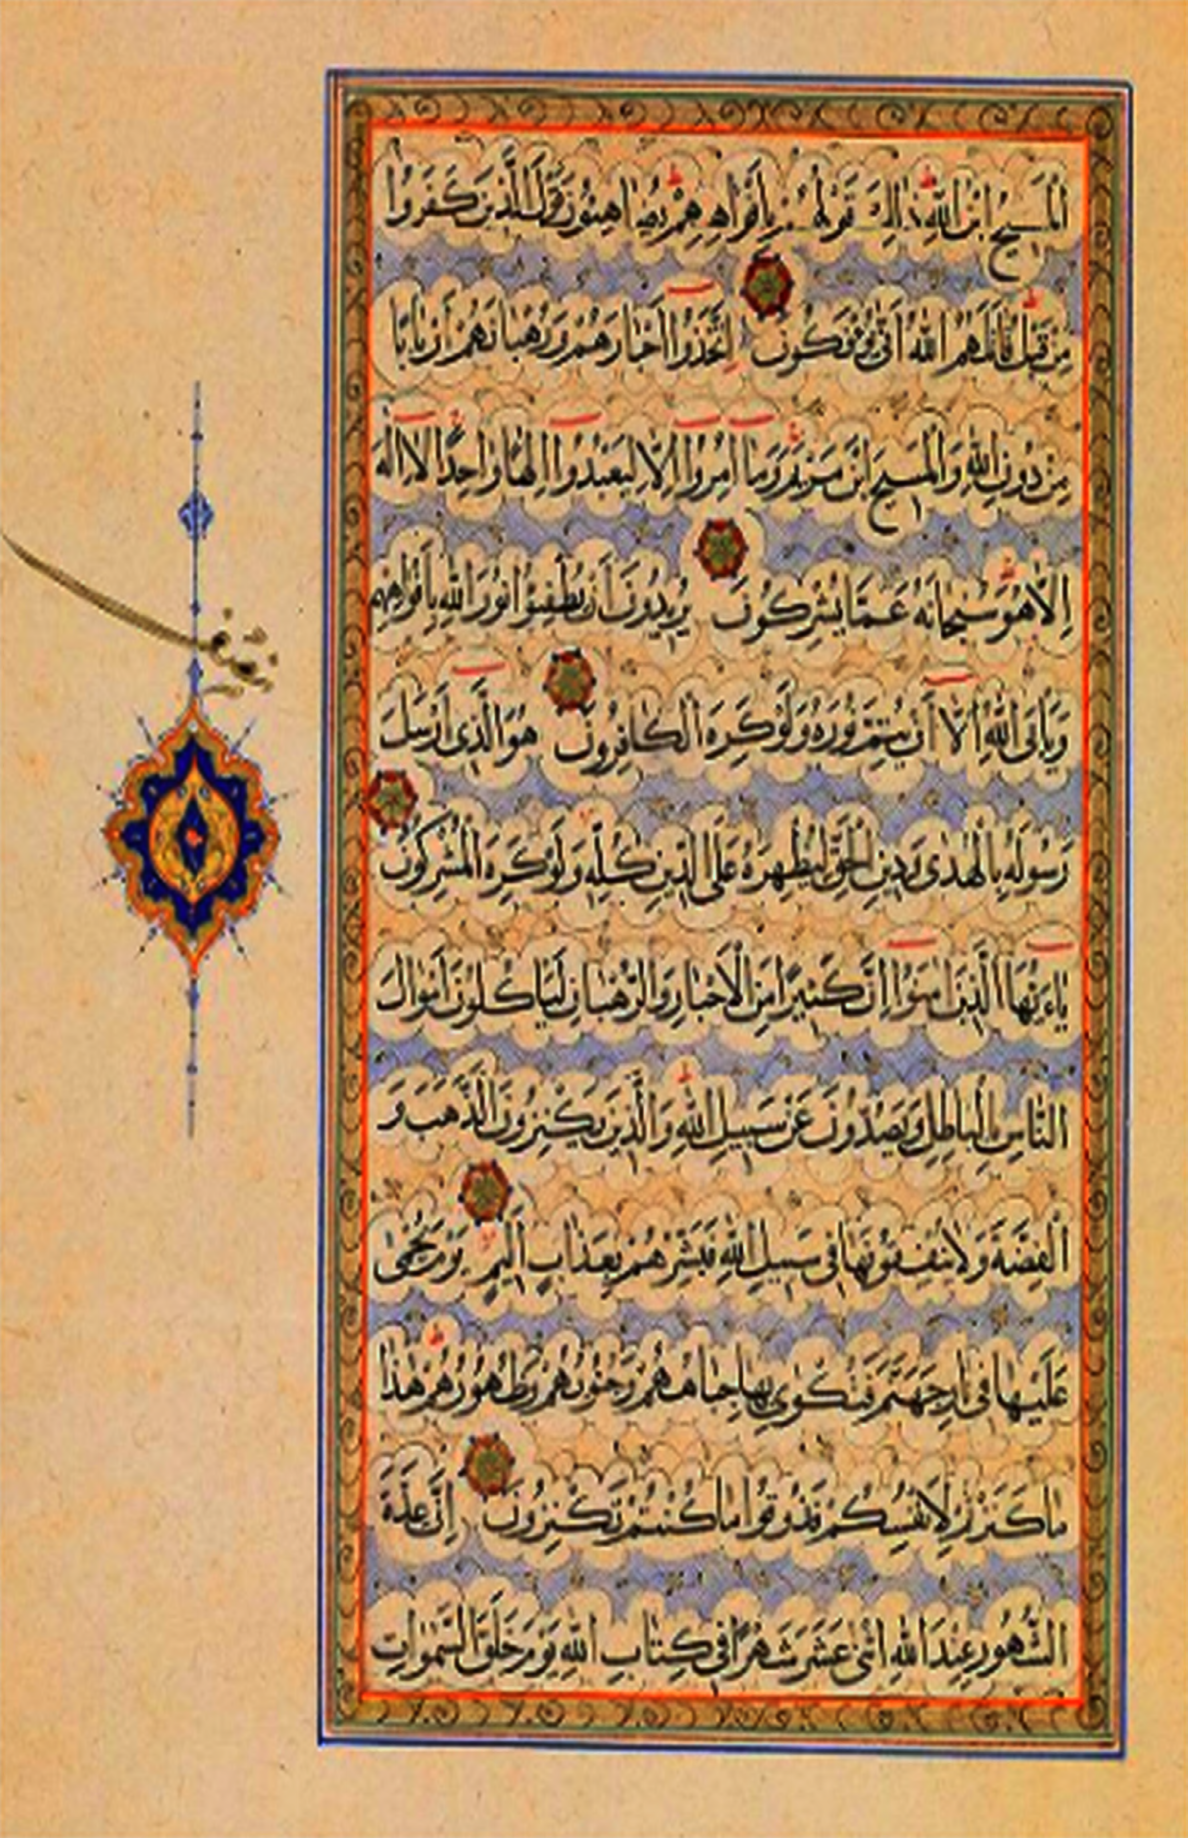 الْمَسِيحُ ابْنُ اللَّهِ ذَٰلِكَ قَوْلُهُمْ بِأَفْوَاهِهِمْ يُضَاهِئُونَ قَوْلَ الَّذِينَ كَفَرُوا
مِنْ قَبْلُ قَاتَلَهُمُ اللَّهُ أَنَّىٰ يُؤْفَكُونَ اِتَّخَذُوا أَحْبَارَهُمْ وَرُهْبَانَهُمْ أَرْبَابًا
مِنْ دُونِ اللَّهِ وَالْمَسِيحَ ابْنَ مَرْيَمَ وَمَا أُمِرُوا إِلَّا لِيَعْبُدُوا إِلَٰهًا وَاحِدًا لَا إِلَٰهَ
إِلَّا هُوَ سُبْحَانَهُ عَمَّا يُشْرِكُونَ يُرِيدُونَ أَنْ يُطْفِئُوا نُورَ اللَّهِ بِأَفْوَاهِهِمْ
وَيَأْبَى اللَّهُ إِلَّا أَنْ يُتِمَّ نُورَهُ وَلَوْ كَرِهَ الْكَافِرُونَ هُوَ الَّذِي أَرْسَلَ
رَسُولَهُ بِالْهُدَىٰ وَدِينِ الْحَقِّ لِيُظْهِرَهُ عَلَى الدِّينِ كُلِّهِ وَلَوْ كَرِهَ الْمُشْرِكُونَ
يَاءَيُّهَا الَّذِينَ آمَنُوا إِنَّ كَثِيرًا مِنَ الْأَحْبَارِ وَالرُّهْبَانِ لَيَأْكُلُونَ أَمْوَالَ
النَّاسِ بِالْبَاطِلِ وَيَصُدُّونَ عَنْ سَبِيلِ اللَّهِ وَالَّذِينَ يَكْنِزُونَ الذَّهَبَ وَ
الْفِضَّةَ وَلَا يُنْفِقُونَهَا فِي سَبِيلِ اللَّهِ فَبَشِّرْهُمْ بِعَذَابٍ أَلِيمٍ يَوْمَ يُحْمَىٰ
عَلَيْهَا فِي نَارِ جَهَنَّمَ فَتُكْوَىٰ بِهَا جِبَاهُهُمْ وَجُنُوبُهُمْ وَظُهُورُهُمْ هَٰذَا
مَا كَنَزْتُمْ لِأَنْفُسِكُمْ فَذُوقُوا مَا كُنْتُمْ تَكْنِزُونَ إِنَّ عِدَّةَ
الشُّهُورِ عِنْدَ اللَّهِ اثْنَىٰ عَشَرَ شَهْرًا فِي كِتَابِ اللَّهِ يَوْمَ خَلَقَ السَّمَوَاتِ